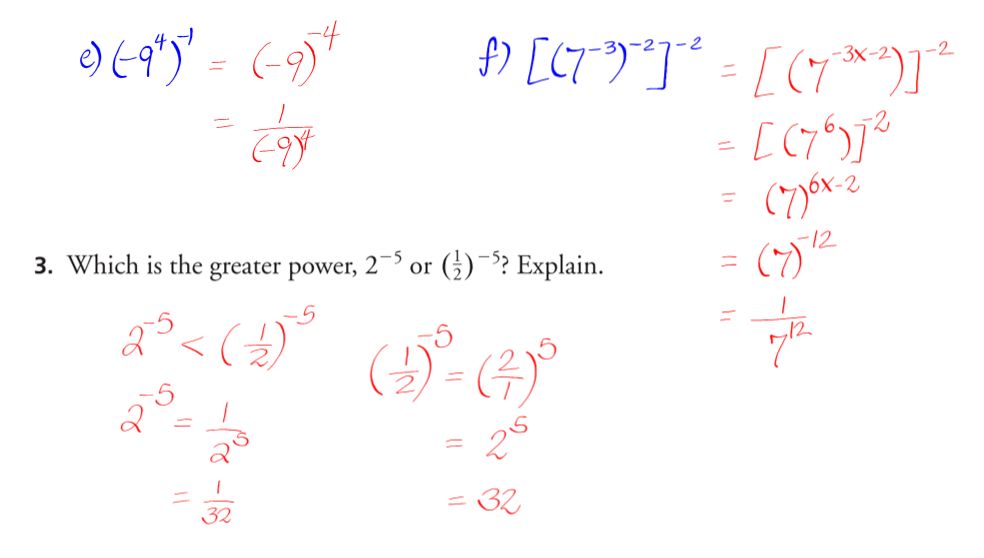 e) (-9⁴)⁻¹ = (-9)⁻⁴
= 1/(-9)⁴
f) [(7⁻³)⁻²]⁻² = [(7⁻³ˣ⁻²)]⁻²
= [(7⁶)]⁻²
= (7)⁶ˣ⁻²
= (7)⁻¹²
= 1/7¹²
3. Which is the greater power, 2⁻⁵ or (1/2)⁻⁵? Explain.
2⁻⁵ < (1/2)⁻⁵
2⁻⁵ = 1/2⁵
= 1/32
(1/2)⁻⁵ = (2/1)⁵
= 2⁵
= 32